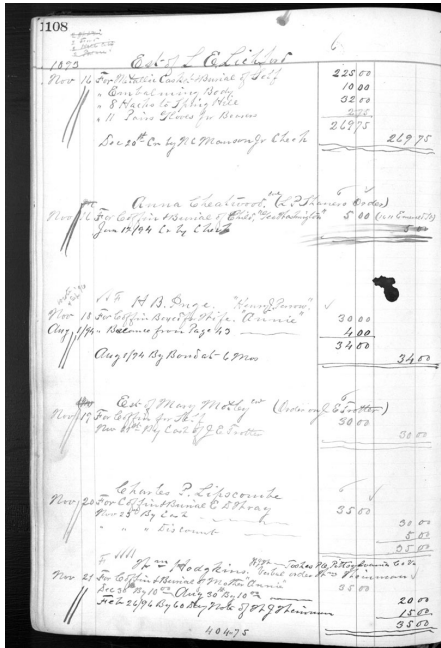 1108
1893 Est of L E Lichford 6
Nov 16 For Metallic Casket & Burial of Self 225 00
" Embalming Body 10 00
" 8 Hacks to Spring Hill 32 00
" 11 Pairs Gloves for Bearers 2 75
269 75
Dec 20th Cr by N C Manson Jr Check 269 75
Anna Cheatwood, (L P Shaners Order)
Nov 16 For Coffin & Burial of Child, 5 00
Jan 12/94 Cr by Cash 5 00
H B Inge. "Henry Perrow"
Nov 18 For Coffin Boxes for Wife. "Annie" 30 00
Aug 1/94 " Balance from Page 43 4 00
34 00
Aug 1/94 By Bond at 6 Mos 34 00
Est of Mary Mosley (Order on J C Trotter)
Nov 19 For Coffin for Self 30 00
Nov By Cash of J C Trotter 30 00
Charles P. Lipscombe
Nov 20 For Coffin & Burial 35 00
Nov 25th By Cash 30 00
" " " Discount 5 00
35 00
Wm Hodgkins. Verbal order
Nov 21 For Coffin & Burial of Mother "Annie" 35 00
Dec 30th By 10 00 Aug 30th By 10 00 20 00
Feb 26/94 By 60 Day Note of 15 00
35 00
404 75